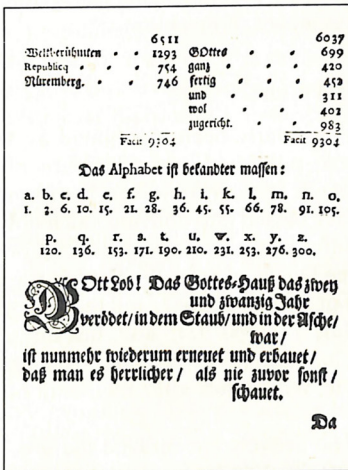 6511
Weltberühmten • • 1293
Republicq • • • 754
Nüremberg. • • 746
Facit 9304
6037
GOttes • • • 699
ganz • • • 420
fertig • • • 452
und • • • 311
wol • • • 402
zugericht. • • 983
Facit 9304
Das Alphabet ist bekandter massen:
a. b. c. d. e. f. g. h. i. k. l. m. n. o.
1. 3. 6. 10. 15. 21. 28. 36. 45. 55. 66. 78. 91. 105.
p. q. r. s. t. u. w. x. y. z.
120. 136. 153. 171. 190. 210. 231. 253. 276. 300.
GOtt Lob! Das Gottes-Hauß das zwey
und zwanzig Jahr
verödet/ in dem Staub/ und in der Asche/
war/
ist nunmehr wiederum erneuet und erbauet/
daß man es herrlicher / als nie zuvor sonst/
schauet.
Da